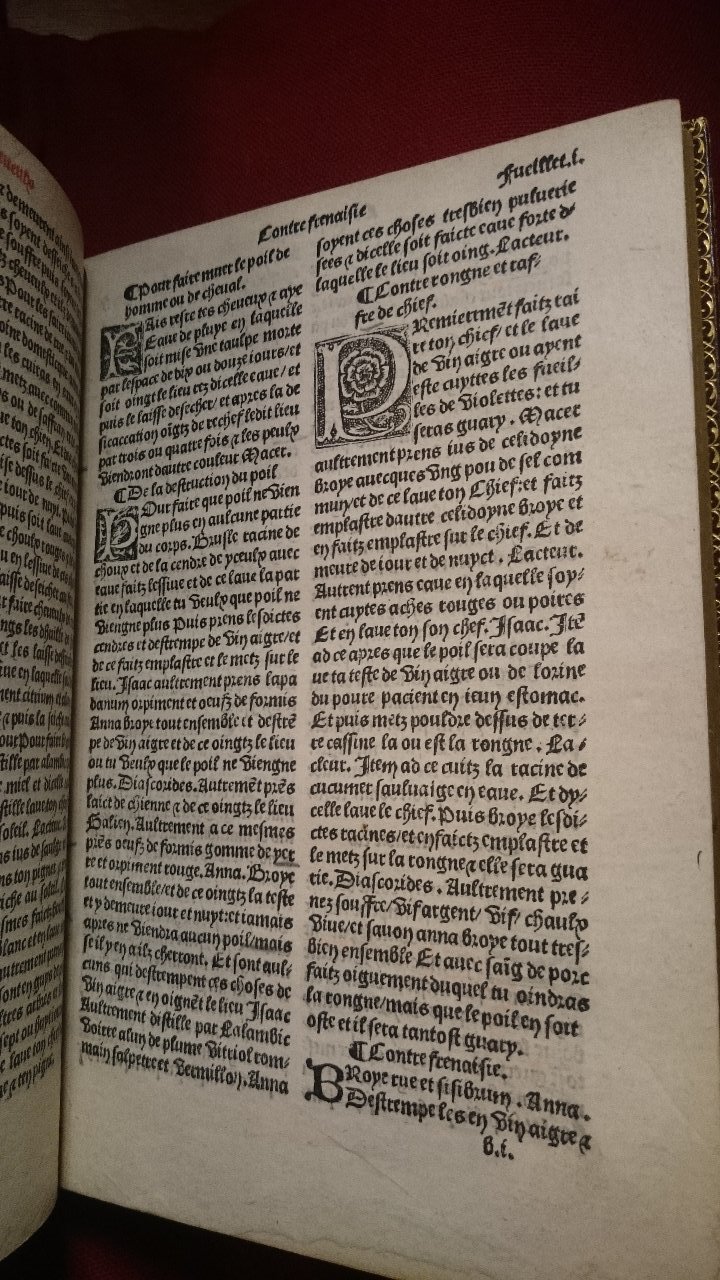 Contre frenaisie
Fueillet.i.
¶Pour faire muer le poil de
homme ou de cheual.
FAis rere tes cheueux ⁊ aye
Eaue de pluye en laquelle
soit mise vne taulpe morte
par lespace de dix ou douze iours/et
soit oingt le lieu rez dicelle eaue/et
puis le laisse desecher/et apres la de
siccation oigtz de rechef ledit lieu
par trois ou quatre fois ⁊ les peulx
viendront dautre couleur Macer.
¶De la destruction du poil
POur faire que poil ne vien
gne plus en aulcune partie
du corps. Brusle racine de
choux et de la cendre de yceulx auec
eaue faitz lessiue et de ce laue la par
tie en laquelle tu veulx que poil ne
viengne plus Puis prens lesdictes
cendres et destrempe de vin aigre/et
de ce faitz emplastre et le metz sur le
lieu. Isaac aultrement prens lapa
danum orpiment et oeufz de formis
Anna broye tout ensemble et destrē
pe de vin aigre et de ce oingtz le lieu
ou tu veulx que le poil ne viengne
plus. Diascorides. Autremēt prēs
laict de chienne ⁊ de ce oingtz le lieu
Galien. Aultrement a ce mesmes
prēs oeufz de formis gomme de yer
re et orpiment rouge. Anna. Broye
tout ensemble/et de ce oingtz la teste
et y demeure iour et nuyt:et iamais
apres ne viendra aucun poil/mais
se il y en a ilz cherront. Et sont aul⸗
cuns qui destrempent ces choses de
vin aigre ⁊ en oignēt le lieu Isaac
Aultrement distille par Lalambic
voirre alun de plume vitriol rom⸗
main salpetre et vermillon. Anna
soyent ces choses tresbien puluerie
sees ⁊ dicelle soit faicte eaue forte de
laquelle le lieu soit oing. Lacteur.
¶Contre rongne et raf⸗
fre de chief.
PRemierrmēt faitz rai
re ton chief/et le laue
de vin aigre ou ayent
este cuyttes les fueil⸗
les de violettes: et tu
seras guary. Macer
aultrement prens ius de celidoyne
broye auecques vng pou de sel com
mun/et de ce laue ton Chief:et faitz
emplastre dautre celidoyne broye et
en faitz emplastre sur le chief. Et de
meure de iour et de nuyct. Lacteur.
Autrent prens eaue en laquelle soy⸗
ent cuytes aches rouges ou poires
Et en laue ton son chef. Isaac. Itē
ad ce apres que le poil sera coupe la
ue ta teste de vin aigre ou de lorine
du poure pacient en ieun estomac.
Et puis metz pouldre dessus de ter⸗
re cassine la ou est la rongne. La⸗
cteur. Item ad ce cuitz la racine de
cucumer sauluaige en eaue. Et dy⸗
celle laue le chief. Puis broye lesdi⸗
ctes racines/et en faictz emplastre et
le metz sur la rongne ⁊ elle sera gua
rie. Diascorides. Aultrement pre⸗
nez souffre/vif argent/vif/chaulx
viue/et sauon anna broye tout tres⸗
bien ensemble Et auec saīg de porc
faitz oiguement duquel tu oindras
la rongne/mais que le poil en soit
oste et il sera tantost guary.
¶Contre frenaisie.
BRoye rue et sisibrum. Anna.
Destrempe les en vin aigre ⁊
b.i.